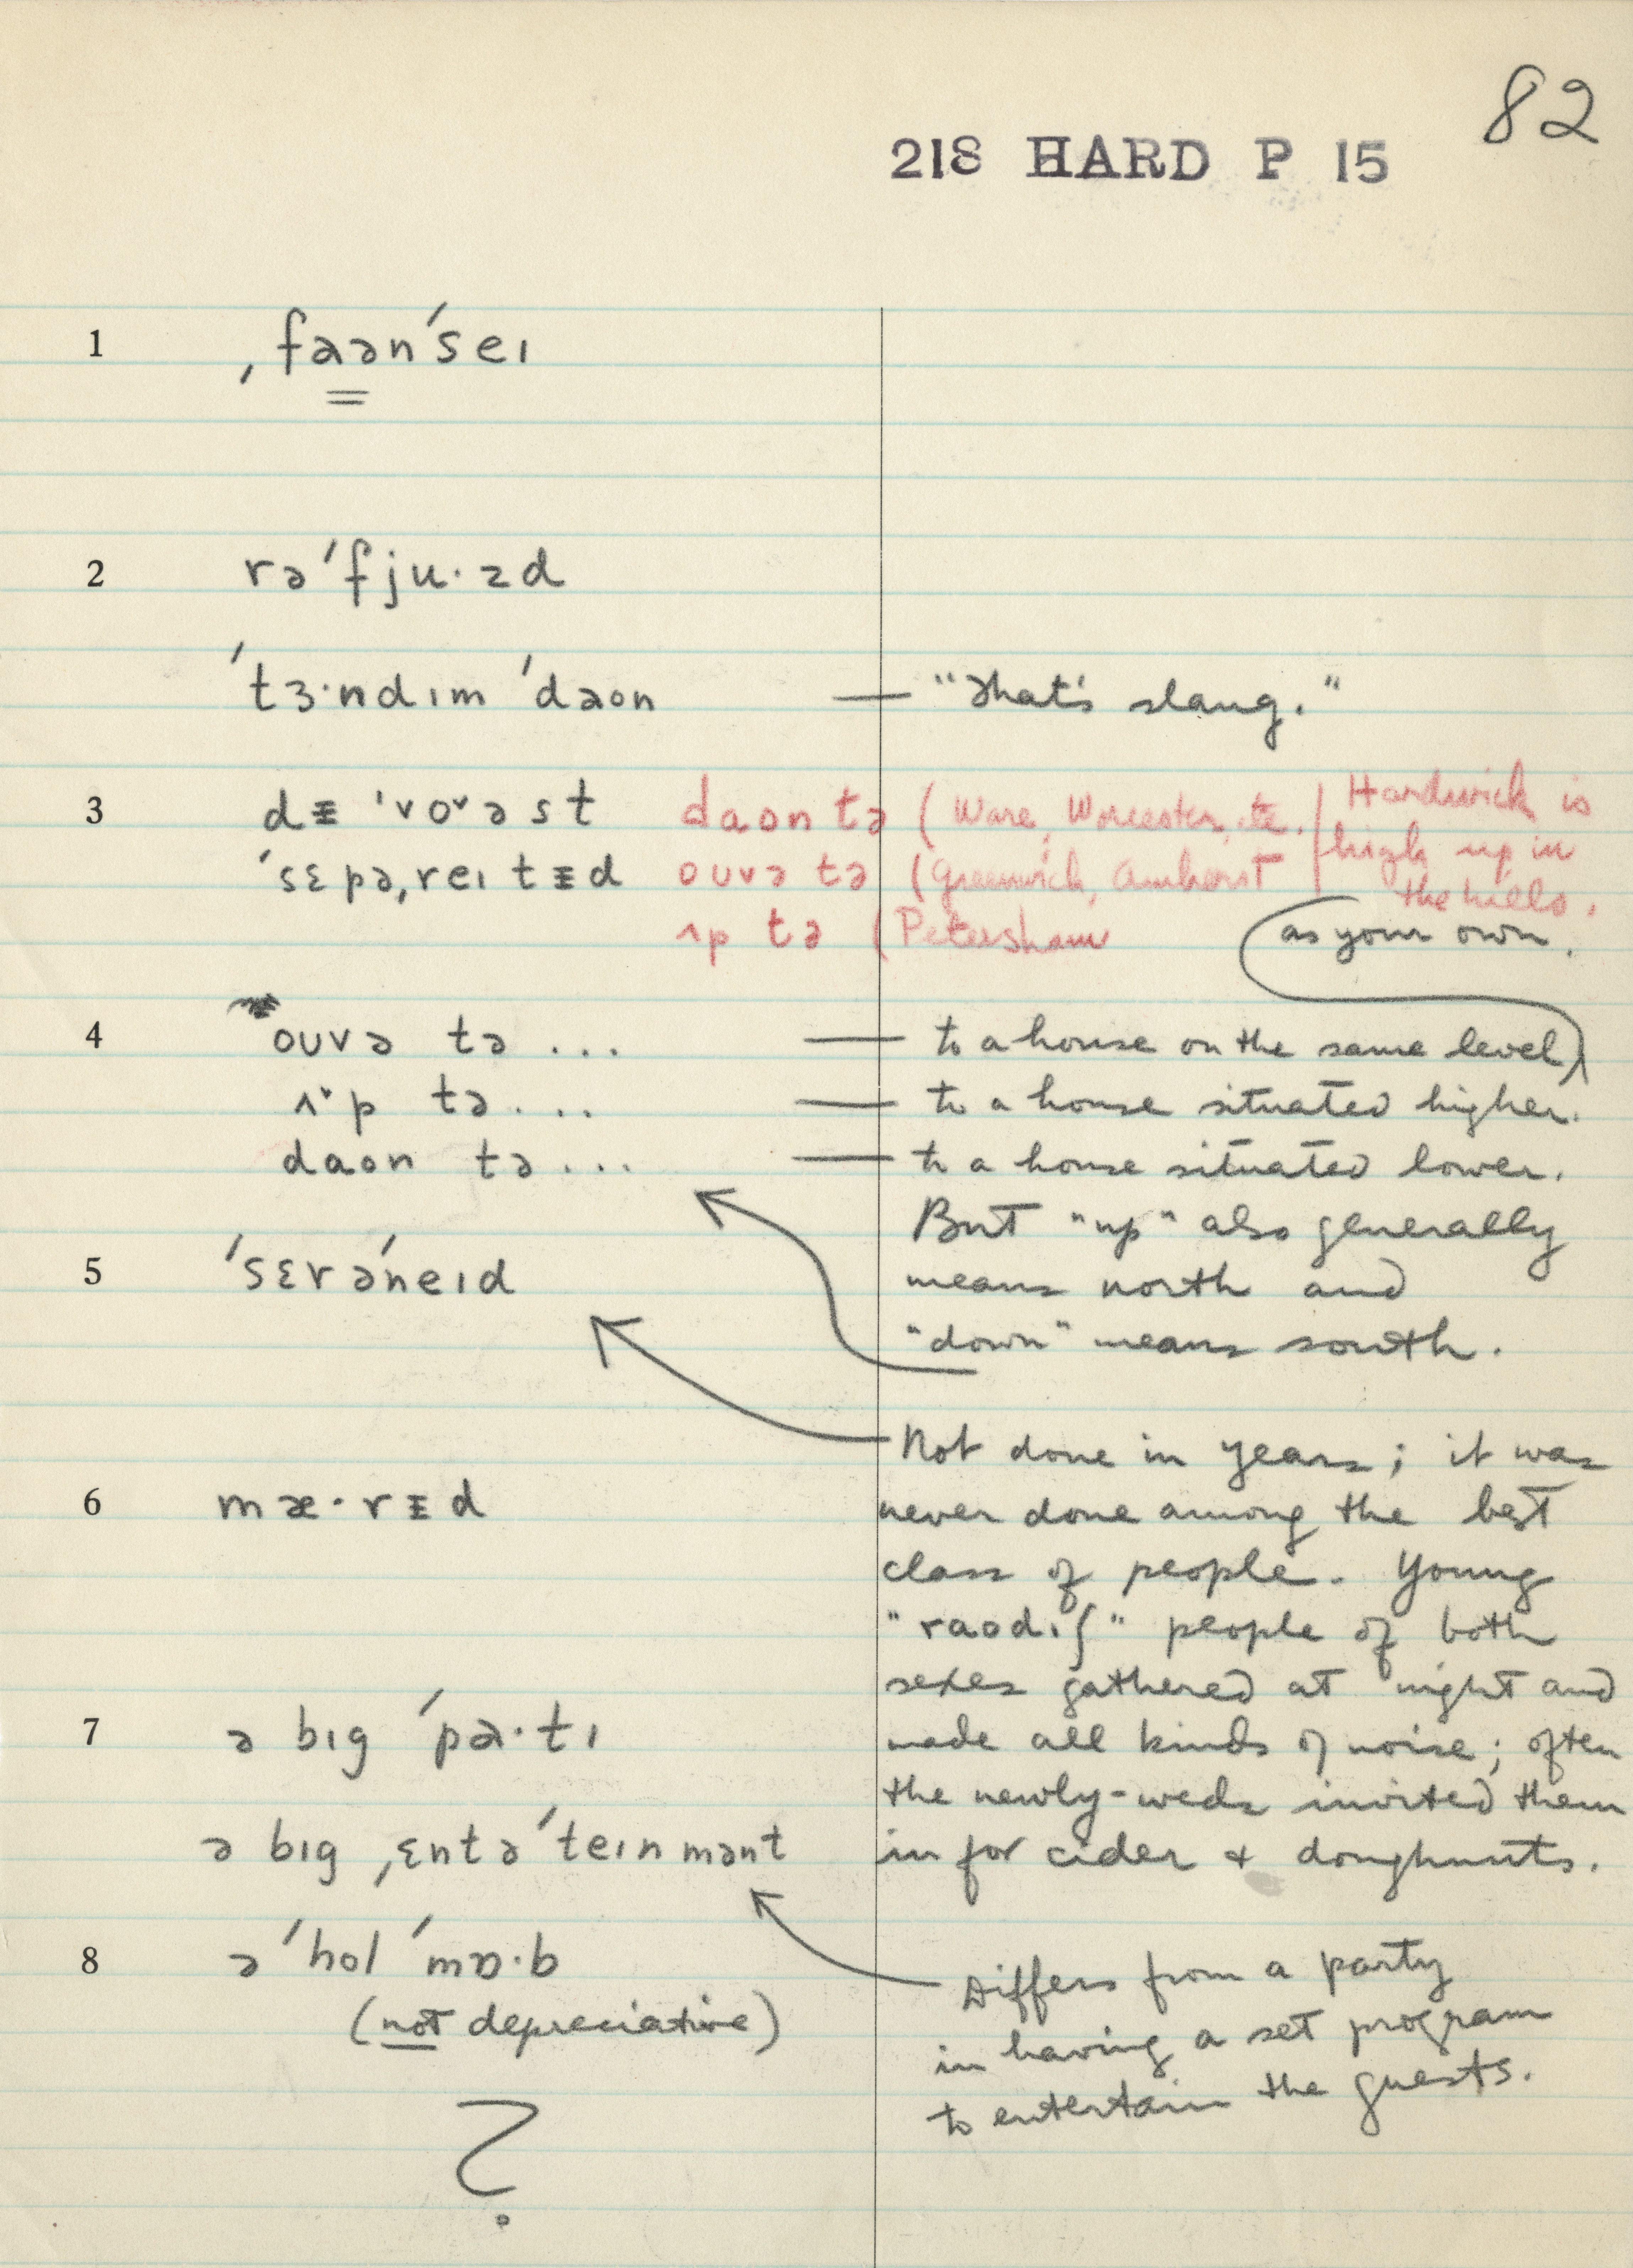 82
218 HARD P 15
1 ˌfaənˈseɪ
2 rəˈfju·zd
ˈtɜ·ndɪm ˈdaʊn — "That's slang."
3 dᵻˈvoˇəst daʊn tə (Ware, Worcester, etc. / Hardwick is
ˈsɛpəˌreɪtᵻd oʊvə tə (Greenwich, Amherst / high up in
the hills.
ʌp tə (Petersham
as your own.
4 oʊvə tə ... — to a house on the same level
ʌˇp tə ... — to a house situated higher.
daʊn tə ... — to a house situated lower.
But "up" also generally
means north and
"down" means south.
5 ˈsɛrəˈneɪd
Not done in years; it was
never done among the best
class of people. Young
"raʊdɪʃ" people of both
sexes gathered at night and
made all kinds of noise; often
the newly-weds invited them
in for cider & doughnuts.
6 mæ·rᵻd
7 ə bɪg ˈpa·tɪ
ə bɪg ˌɛntəˈteɪnmənt
Differs from a party
in having a set program
to entertain the guests.
8 ə ˈhol ˈmɒ·b
(not depreciative)
?